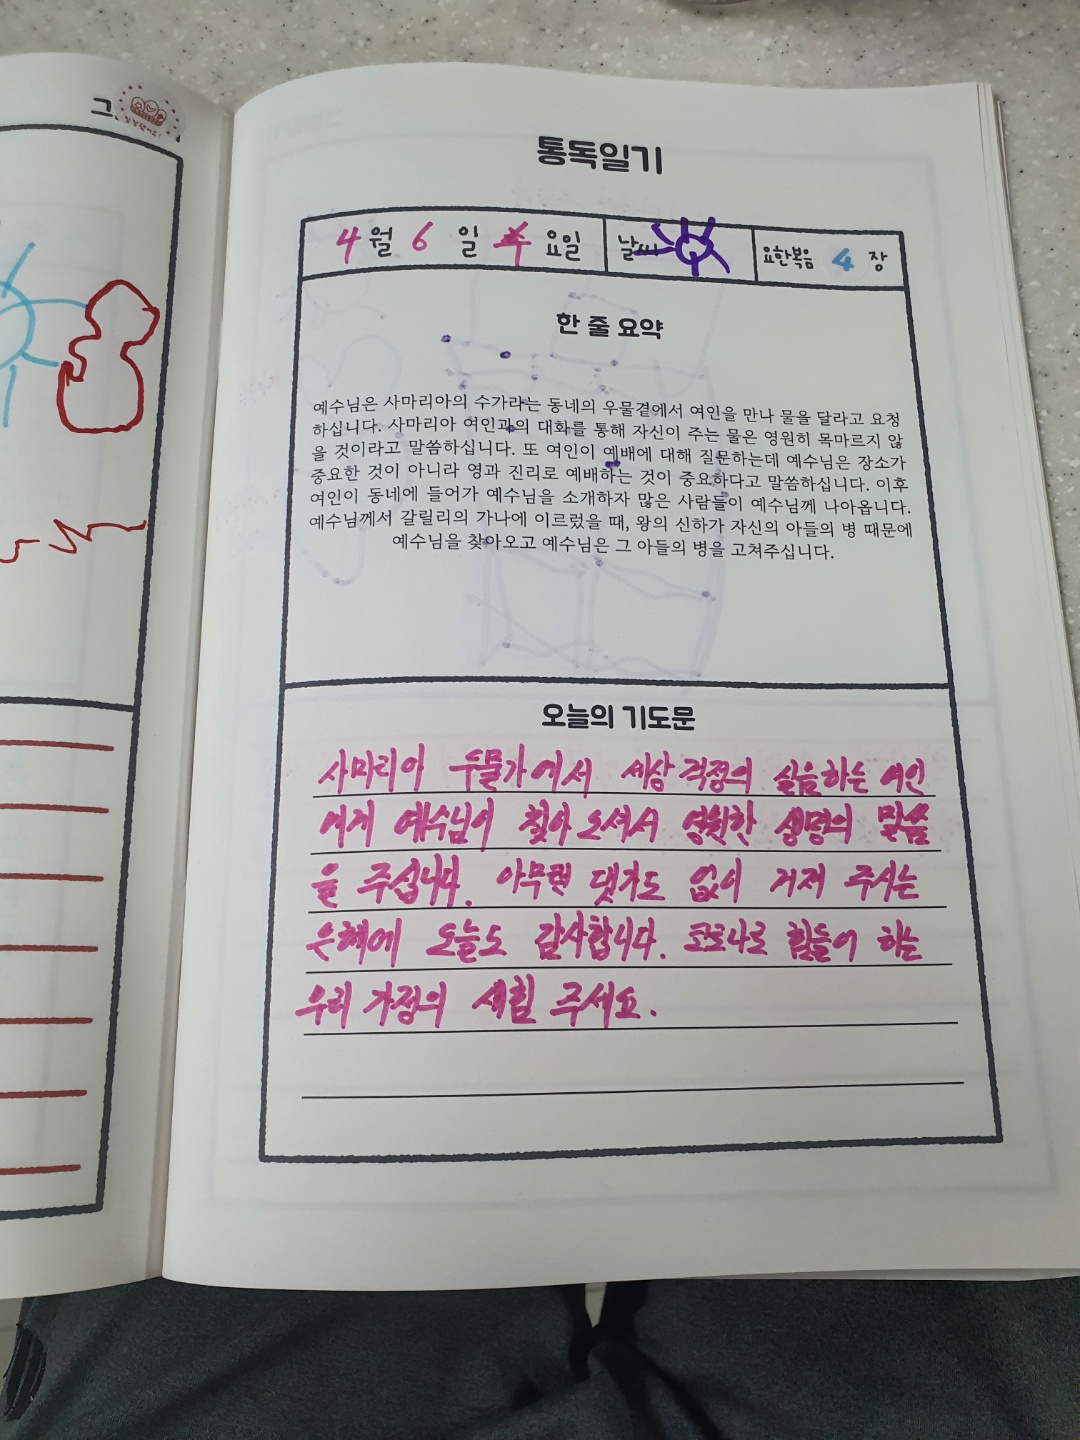 그
참 잘했어요!
통독일기
4월 6일 수요일 날씨 요한복음 4장
한 줄 요약
예수님은 사마리아의 수가라는 동네의 우물곁에서 여인을 만나 물을 달라고 요청
하십니다. 사마리아 여인과의 대화를 통해 자신이 주는 물은 영원히 목마르지 않
을 것이라고 말씀하십니다. 또 여인이 예배에 대해 질문하는데 예수님은 장소가
중요한 것이 아니라 영과 진리로 예배하는 것이 중요하다고 말씀하십니다. 이후
여인이 동네에 들어가 예수님을 소개하자 많은 사람들이 예수님께 나아옵니다.
예수님께서 갈릴리의 가나에 이르렀을 때, 왕의 신하가 자신의 아들의 병 때문에
예수님을 찾아오고 예수님은 그 아들의 병을 고쳐주십니다.
오늘의 기도문
사마리아 우물가에서 세상 걱정의 실음하는 여인
에게 예수님이 찾아 오셔서 영원한 생명의 말씀
을 주십니다. 아무런 댓가도 없이 거저 주시는
은혜에 오늘도 감사합니다. 코로나로 힘들어 하는
우리 가정의 새힘 주세요.